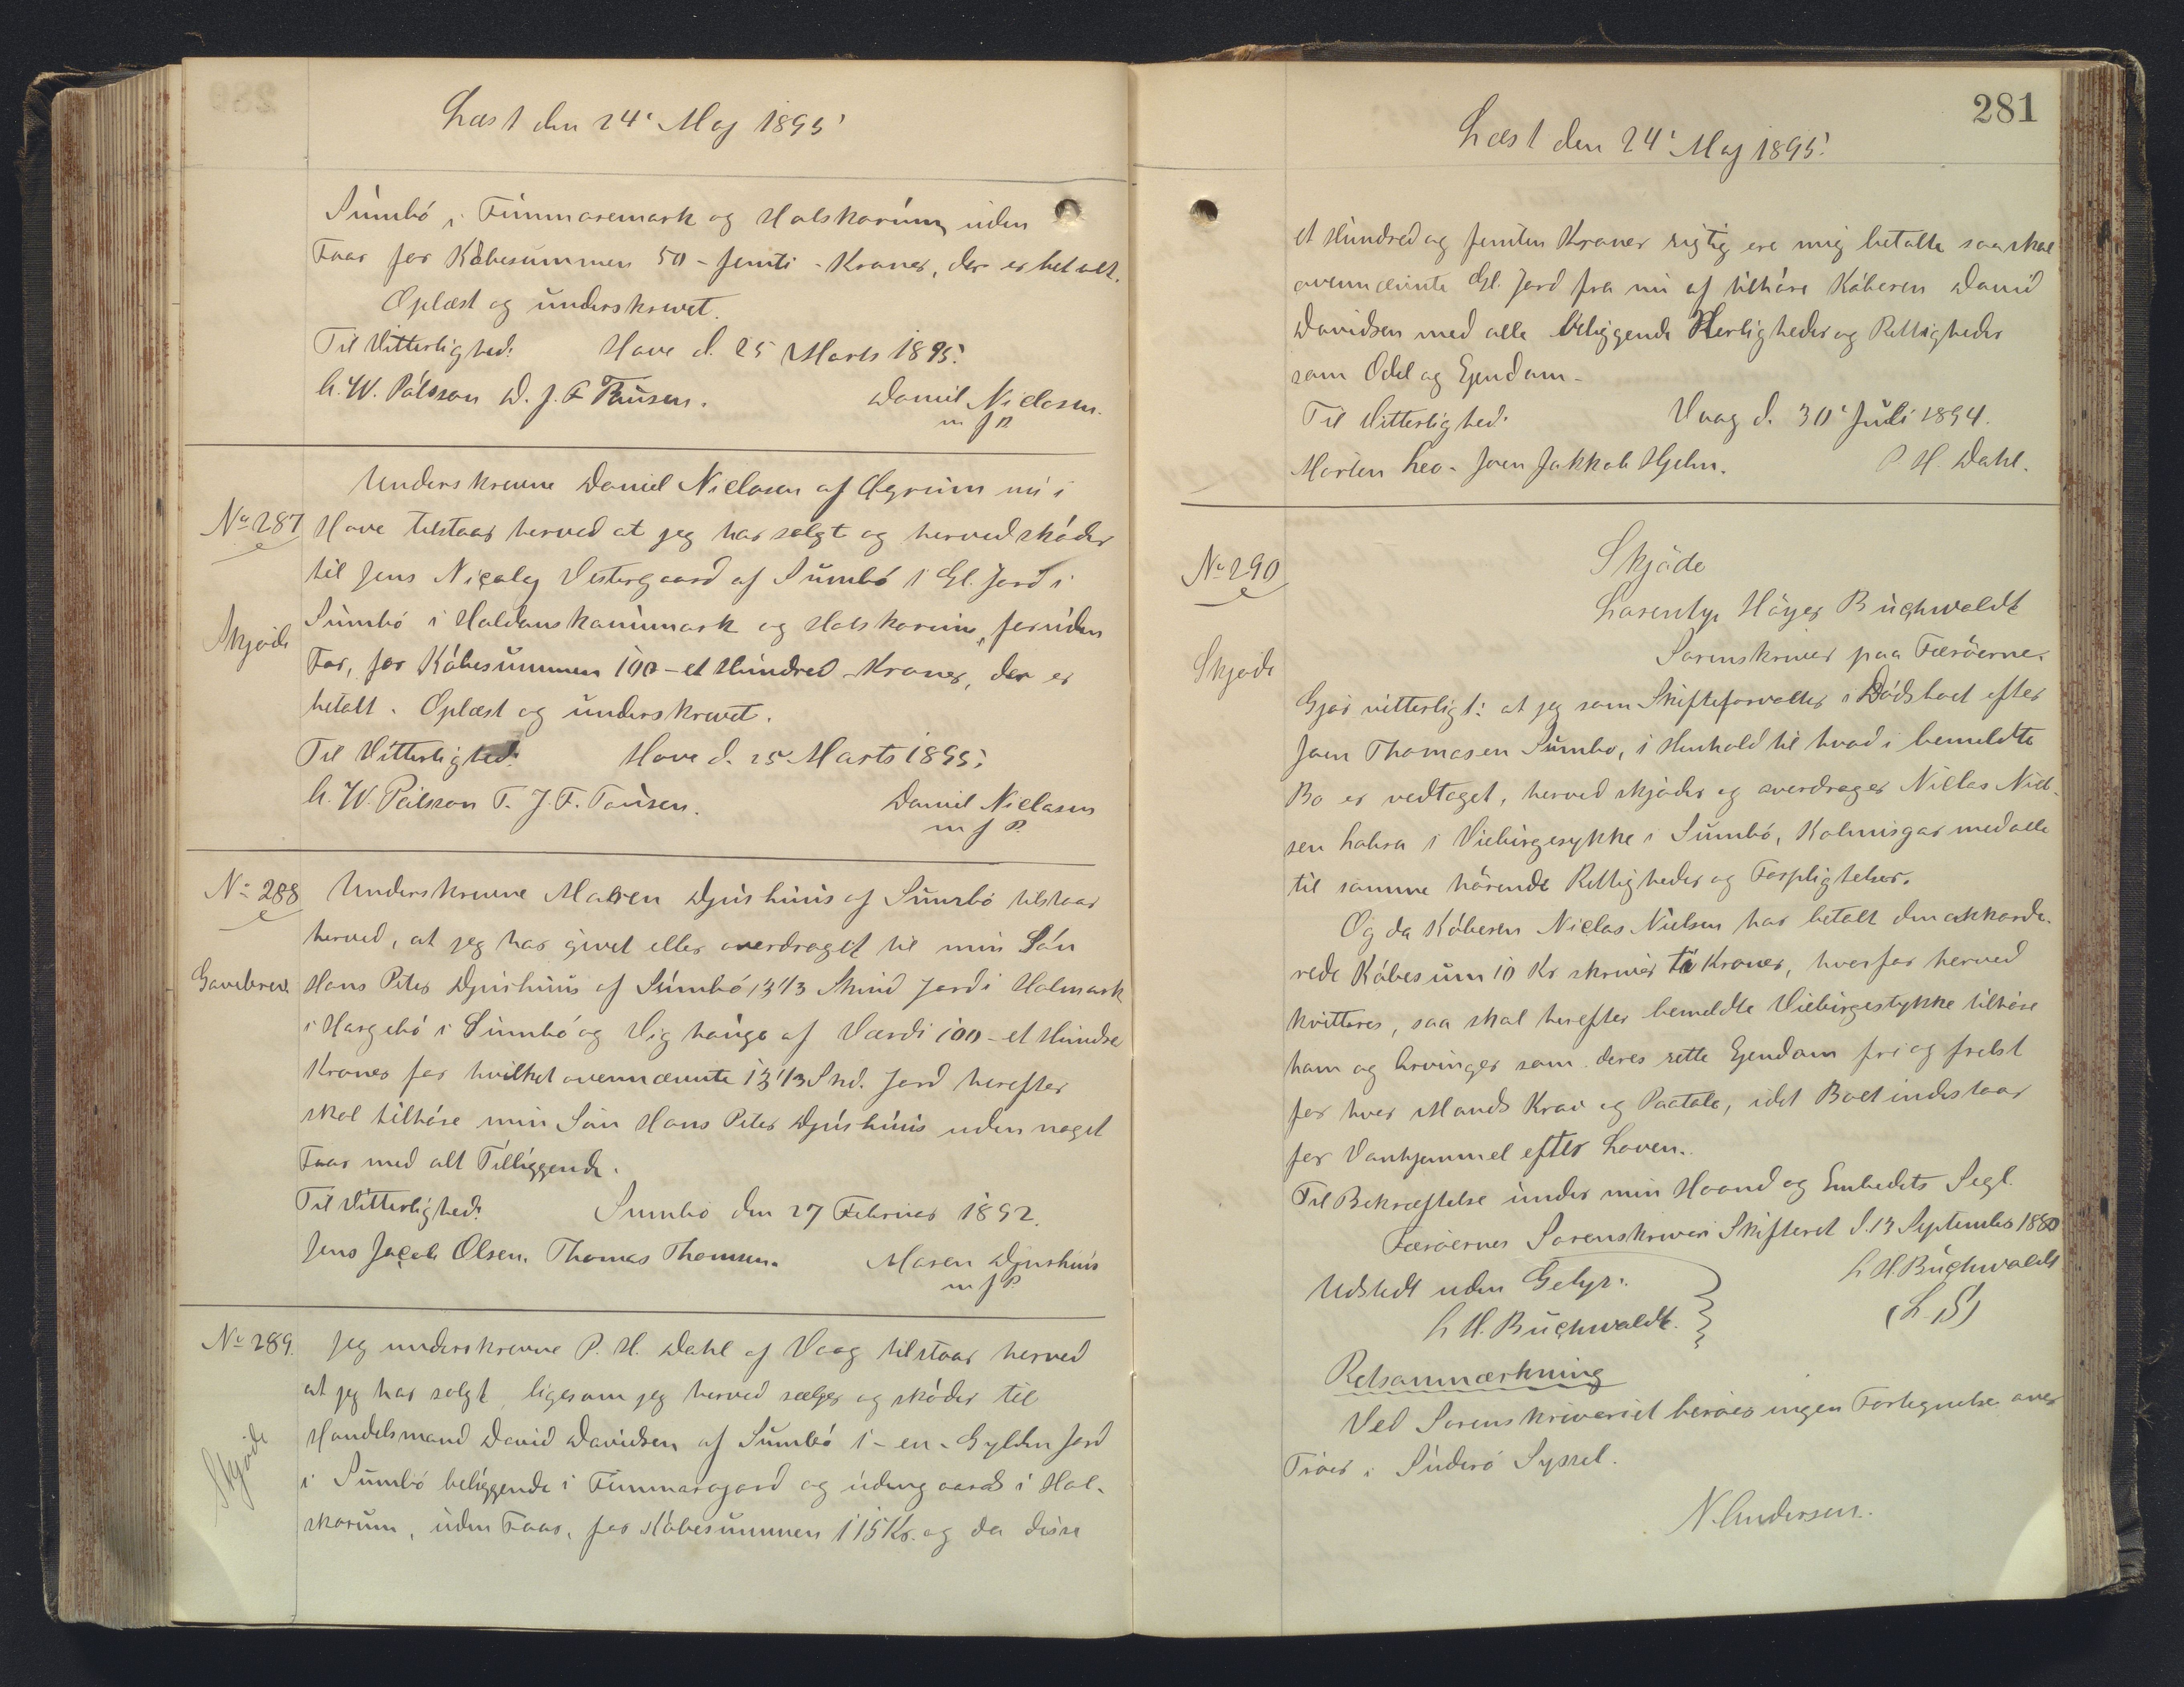 Læst den 24' Maj 1895'
Sumbö i Fimmaremark og Halskorúm uden
Faar for Köbesummen 50 - femti - Kroner, der er betalt.
Oplæst og underskrevet.
Til Vitterlighed: Hove d. 25 Marts 1895.
C. W. Pálsson D. J. F. Tausen. Daniel Niclasen
m f P
No 287
Skjöde
Underskrevne Daniel Niclasen af Øgrim nu i
Hove tilstaar herved at jeg har solgt og herved skóder
til Jens Nicolaj Vestergaard af Sumbö 1 Gl. Jord i
Sumbö i Haldanskammark og Halskorum, foruden
Far, for Köbesummen 100 - et Hundred - Kroner, der er
betalt. Oplæst og underskrevet.
Til Vitterlighed: Hove d. 25 Marts 1895.
C. W. Pálsson T. J. F. Tausen. Daniel Niclasen
m f P.
No 288
Gavebrev.
Underskrevne Maren Djúrhuus af Sumbö tilstaar
herved, at jeg har givet eller overdraget til min Sön
Hans Peter Djurhuus af Sumbö 13 1/3 Skind Jord i Halmark
i Hargebö i Sumbö og Vighauge af Værdi 100 - et Hundre
Kroner for hvilket ovennævnte 13 1/3 Skd. Jord herefter
skal tilhöre min Sön Hans Peter Djurhuus uden noget
Faar med alt Tilliggende.
Til Vitterlighed: Sumbö den 27 Februar 1892.
Jens Jacob Olsen. Thomas Thomsen. Maren Djurhuus
m f P.
No 289.
Skjöde
Jeg underskrevne P. H. Dahl af Vaag tilstaar herved
at jeg har solgt, ligesom jeg herved sælger og skóder til
Handelsmand David Davidsen af Sumbö 1 - en - Gylden Jord
i Sumbö beliggende i Fimmaragard og udengaards i Hal-
skorum, uden Faar, for Köbesummen 115 Kr. og da disse
281
Læst den 24' Maj 1895.
et Hundred og femten Kroner rigtig ere mig betalte saa skal
ovennævnte Gl. Jord fra nu af tilhöre Köberen David
Davidsen med alle tilliggende Herligheder og Rettigheder
som Odel og Ejendom -
Til Vitterlighed. Vaag d. 30' Juli 1894.
Morten Leo - Joen Jakkob Hjelm. P. H. Dahl.
No 290
Skjöde
Skjöde
Lorentz Höyer Buchwaldt
Sorenskriver paa Færöerne.
Gjör vitterligt: at jeg som Skifteforvalter i Dödsboet efter
Joen Thomasen Sumbö, i Henhold til hvad i bemeldte
Bo er vedtaget, herved skjöder og overdrager Niclas Niel-
sen Lobra 1 Viebirgesykke i Sumbö, Kolmisgar med alle
til samme hörende Rettigheder og Forpligtelser.
Og da Köberen Niclas Nielsen har betalt den akkorde-
rede Köbesum 10 Kr skriver ti Kroner, hvorfor herved
kvitteres, saa skal herefter bemeldte Viebirgestykke tilhöre
ham og Arvinger som deres rette Ejendom fri og frelst
for hver Mands Krav og Paatale, idet Boet indestaar
for Vanhjemmel efter Loven.
Til Bekræftelse under min Haand og Embedets Segl.
Færöernes Sorenskriveri Skifteret d. 13 September 1880
L H. Buchwaldt
(L. S)
Udstedt uden Gebyr.
L H. Buchwaldt.
Retsanmærkning
Ved Sorenskriveriet beroer ingen Fortegnelse over
Tröer i Suderö Syssel.
N. Andersen.